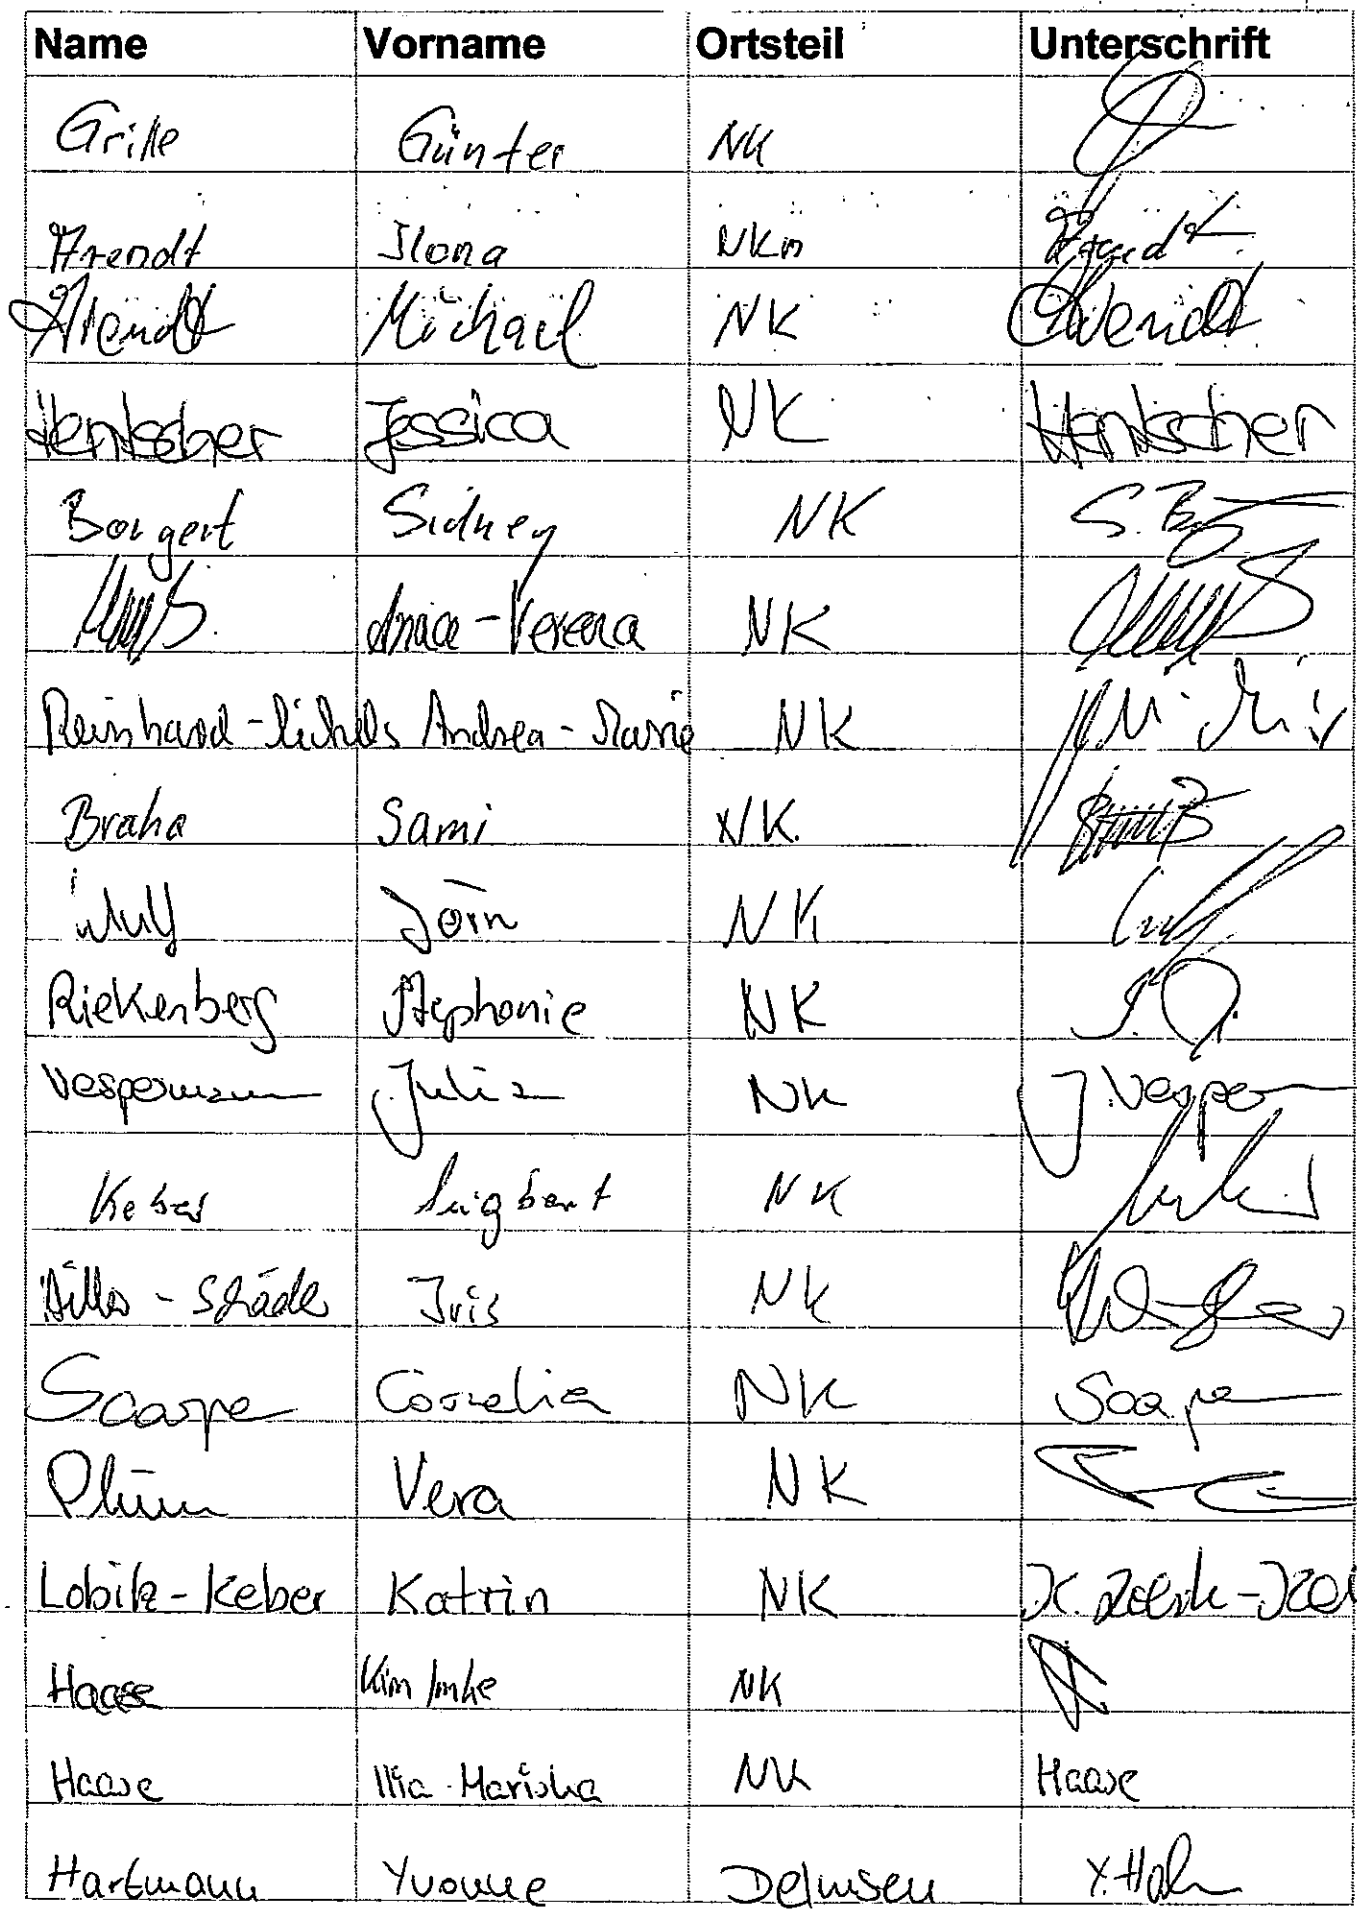 Name Vorname Ortsteil Unterschrift
Grille Günter NK
Arendt Ilona NKn Arendt
Arendt Michael NK Arendt
Hentscher Jessica NK Hentscher
Borgert Sidney NK S. B
NK
Reinhard-Michels Andrea-Marie NK
Braha Sami NK.
Wulf Jörn NK
Riekenberg Stephanie NK
Vespermann Julia NK J. Vesper
Keber Sigbert NK
Städe Iris NK
Scarpe Cornelia NK Scarpe
Plümn Vera NK
Lobitz-Keber Katrin NK
Haase Kim Imke NK
Haase Mariska NK Haase
Hartmann Yvonne Delmsen Y. Ha